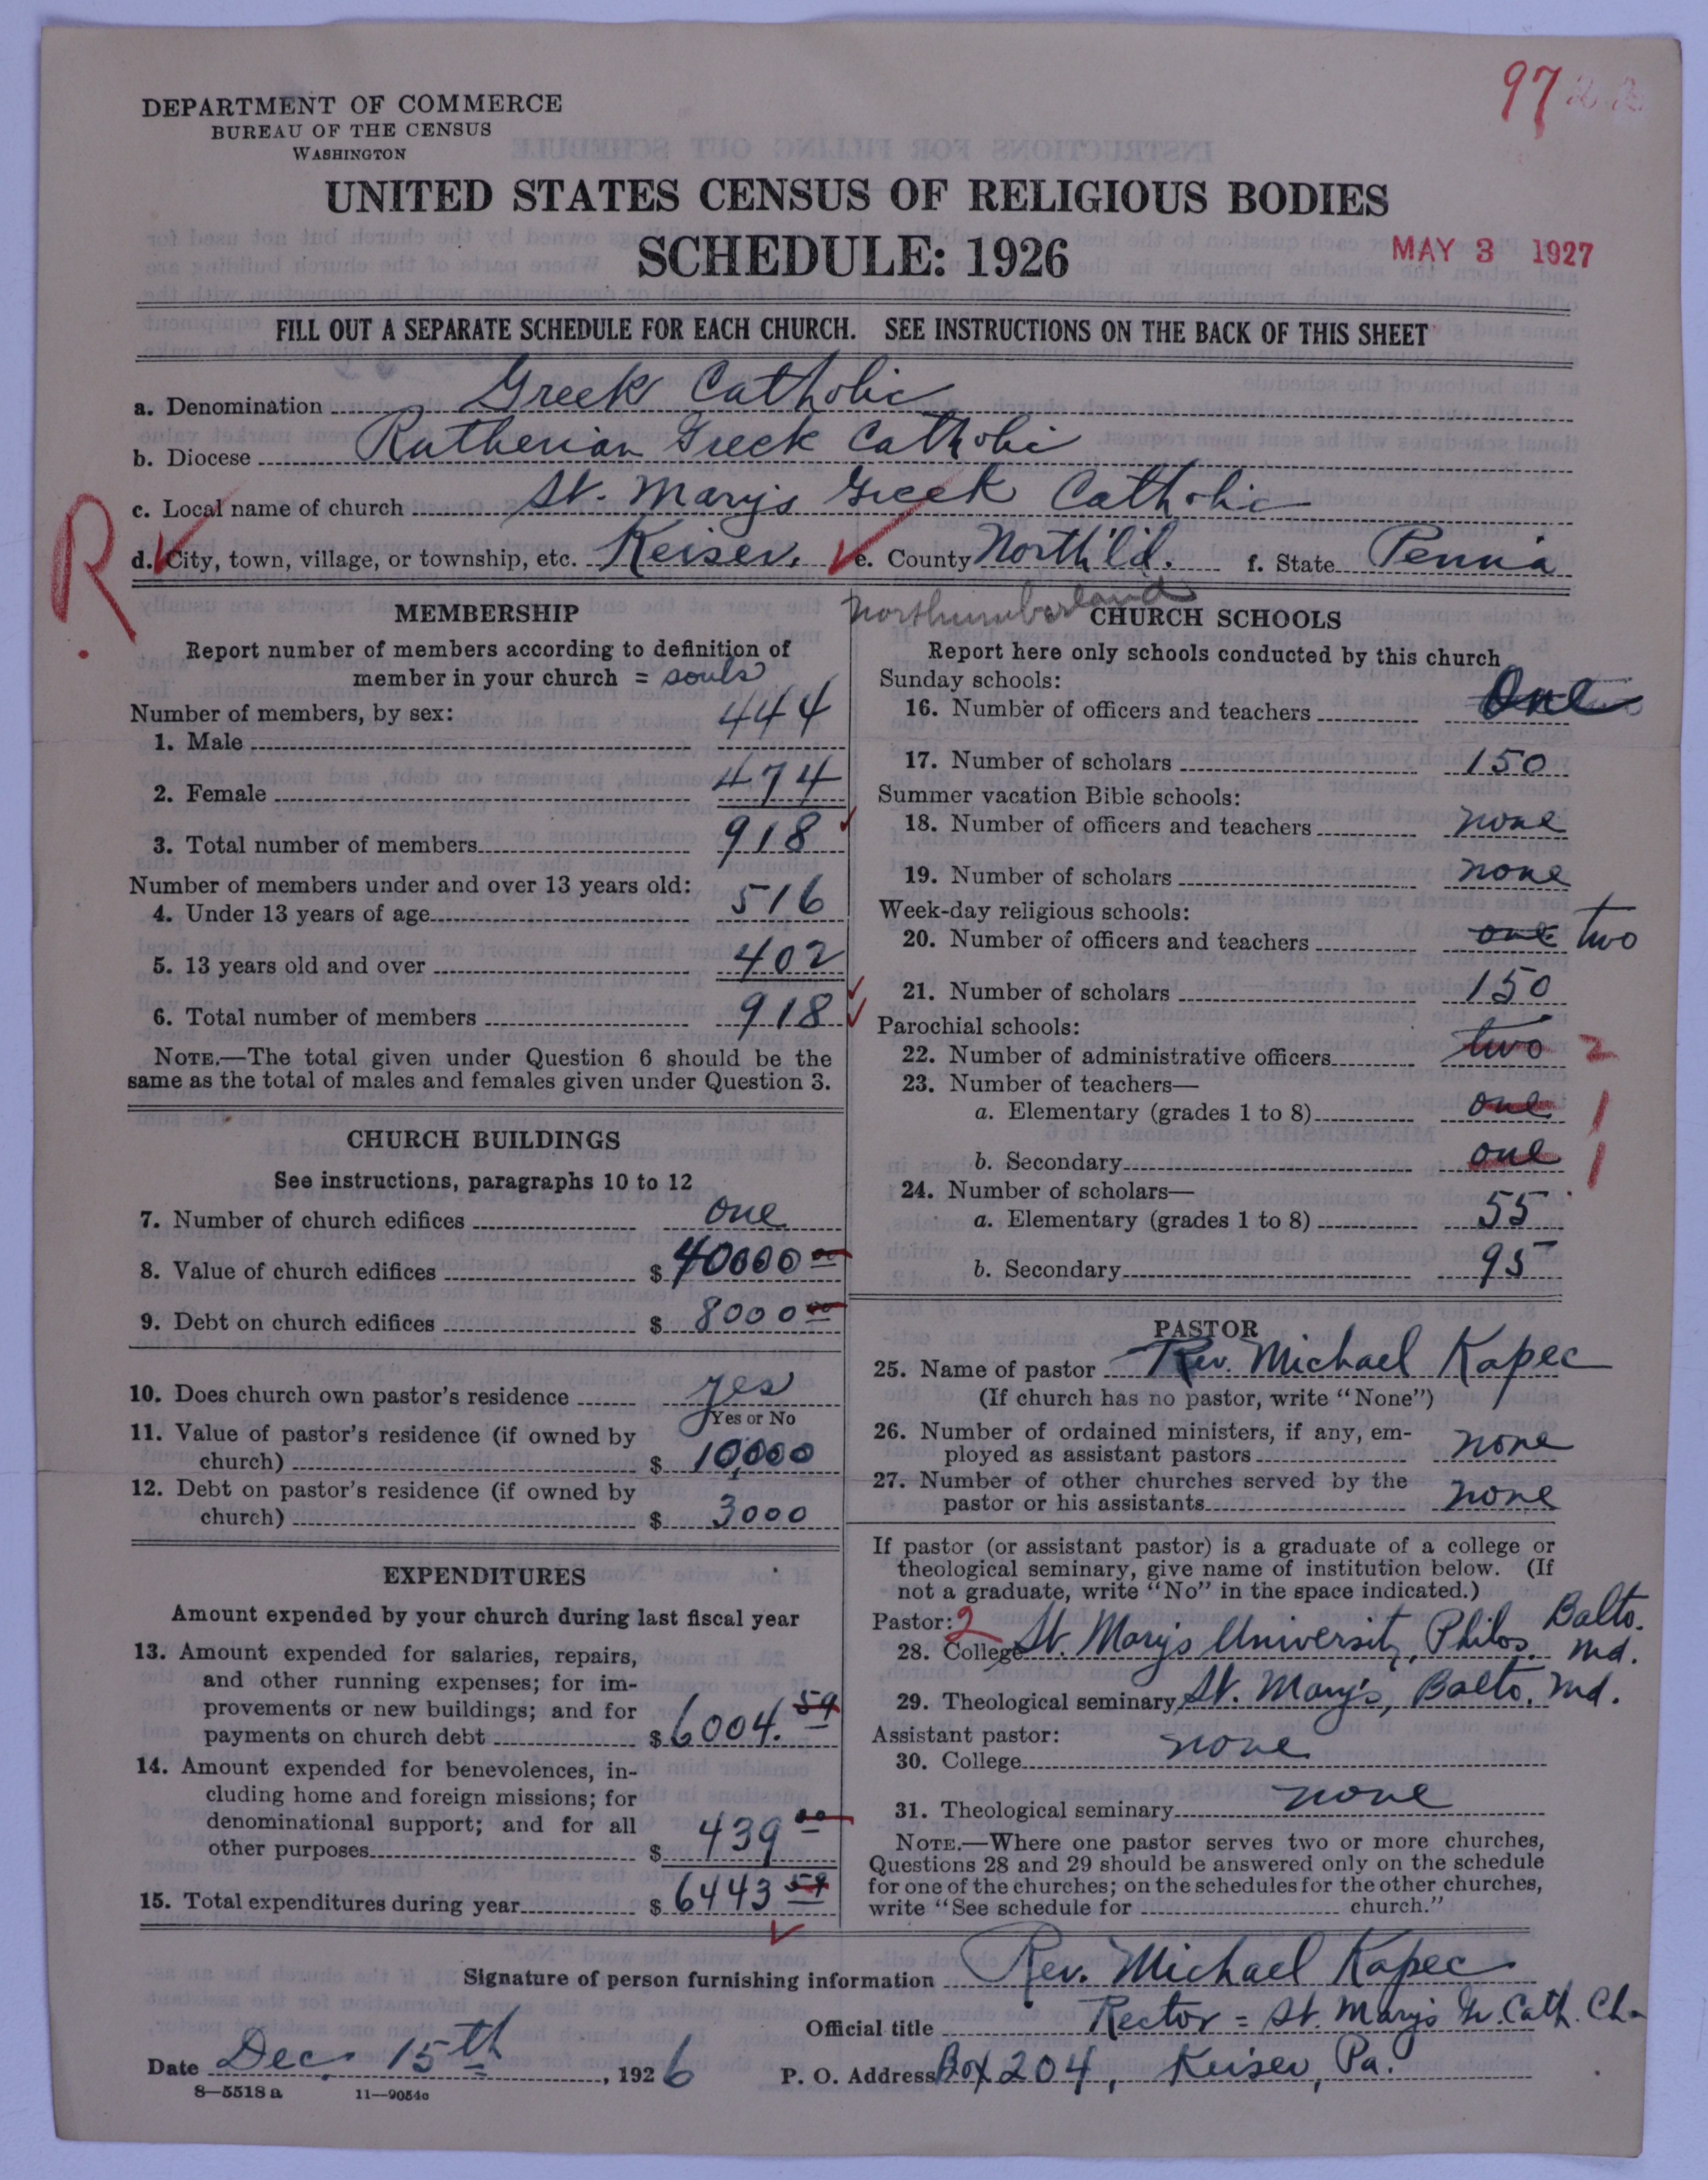 97
DEPARTMENT OF COMMERCE
BUREAU OF THE CENSUS
WASHINGTON
UNITED STATES CENSUS OF RELIGIOUS BODIES
SCHEDULE: 1926
MAY 3 1927
FILL OUT A SEPARATE SCHEDULE FOR EACH CHURCH. SEE INSTRUCTIONS ON THE BACK OF THIS SHEET
a. Denomination Greek Catholic
b. Diocese Ruthenian Greek Catholic
c. Local name of church St. Mary's Greek Catholic
R
d. City, town, village, or township, etc. Keiser. e. County North'l'd. f. State Penn'a
Northumberland
MEMBERSHIP
Report number of members according to definition of
member in your church = souls
Number of members, by sex:
1. Male 444
2. Female 474
3. Total number of members 918
Number of members under and over 13 years old:
4. Under 13 years of age 516
5. 13 years old and over 402
6. Total number of members 918
NOTE.—The total given under Question 6 should be the
same as the total of males and females given under Question 3.
CHURCH BUILDINGS
See instructions, paragraphs 10 to 12
7. Number of church edifices one
8. Value of church edifices $ 40000 00
9. Debt on church edifices $ 8000 00
10. Does church own pastor's residence yes
Yes or No
11. Value of pastor's residence (if owned by
church) $ 10,000
12. Debt on pastor's residence (if owned by
church) $ 3000
EXPENDITURES
Amount expended by your church during last fiscal year
13. Amount expended for salaries, repairs,
and other running expenses; for im-
provements or new buildings; and for
payments on church debt $ 6004. 59
14. Amount expended for benevolences, in-
cluding home and foreign missions; for
denominational support; and for all
other purposes $ 439 00
15. Total expenditures during year $ 6443 59
CHURCH SCHOOLS
Report here only schools conducted by this church
Sunday schools:
16. Number of officers and teachers One two
17. Number of scholars 150
Summer vacation Bible schools:
18. Number of officers and teachers none
19. Number of scholars none
Week-day religious schools:
20. Number of officers and teachers one two
21. Number of scholars 150
Parochial schools:
22. Number of administrative officers two 2
23. Number of teachers—
a. Elementary (grades 1 to 8) one 1
b. Secondary one 1
24. Number of scholars—
a. Elementary (grades 1 to 8) 55
b. Secondary 95
PASTOR
25. Name of pastor Rev. Michael Kapec
(If church has no pastor, write "None")
26. Number of ordained ministers, if any, em-
ployed as assistant pastors none
27. Number of other churches served by the
pastor or his assistants none
If pastor (or assistant pastor) is a graduate of a college or
theological seminary, give name of institution below. (If
not a graduate, write "No" in the space indicated.)
Pastor: 2
28. College St. Mary's University, Philos. Balto. Md.
29. Theological seminary St. Mary's, Balto, Md.
Assistant pastor:
30. College none
31. Theological seminary none
NOTE.—Where one pastor serves two or more churches,
Questions 28 and 29 should be answered only on the schedule
for one of the churches; on the schedules for the other churches,
write "See schedule for church."
Signature of person furnishing information Rev. Michael Kapec
Official title Rector = St. Mary's Gr. Cath. Ch.
Date Dec. 15th, 1926 P. O. Address Box 204, Keiser, Pa.
8—5518a 11—9054c